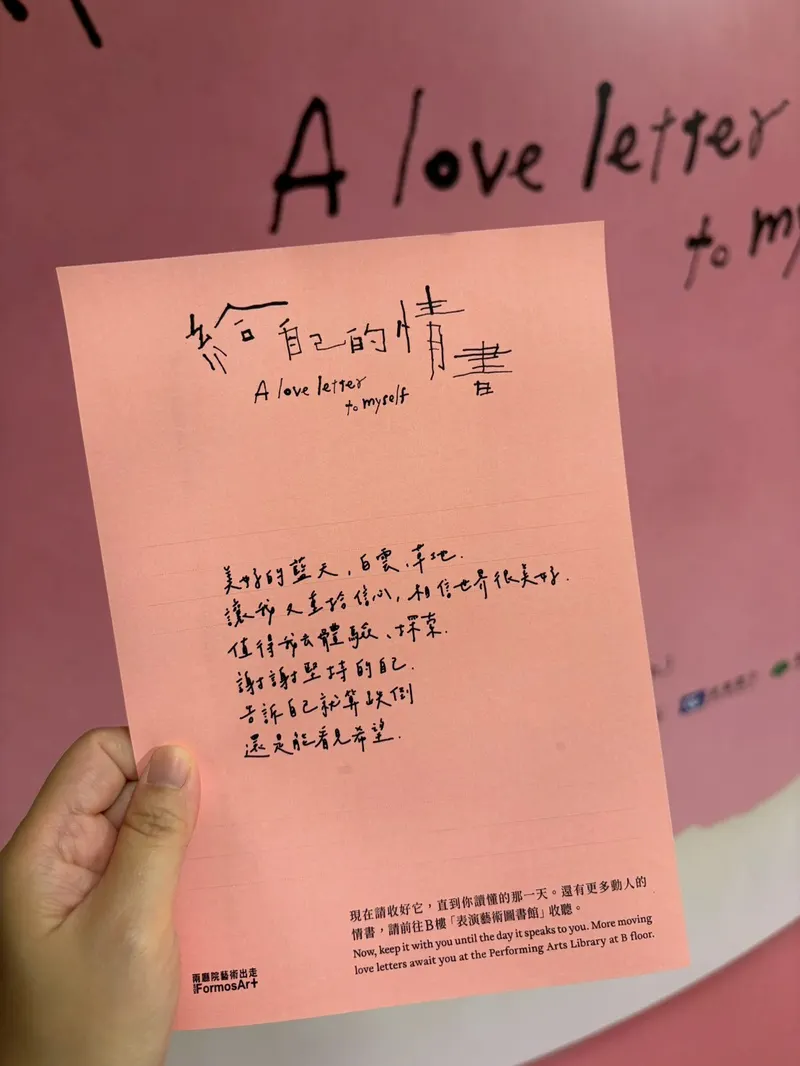 A love letter
to my
給自己的情書
A love letter
to myself
美好的藍天,白雲、草地.
讓我又重拾信心,相信世界很美好.
值得我去體驗、探索.
謝謝堅持的自己.
告訴自己就算跌倒
還是能看見希望.
現在請收好它,直到你讀懂的那一天。還有更多動人的
情書,請前往B樓「表演藝術圖書館」收聽。
Now, keep it with you until the day it speaks to you. More moving
love letters await you at the Performing Arts Library at B floor.
兩廳院藝術出走
FormosArt